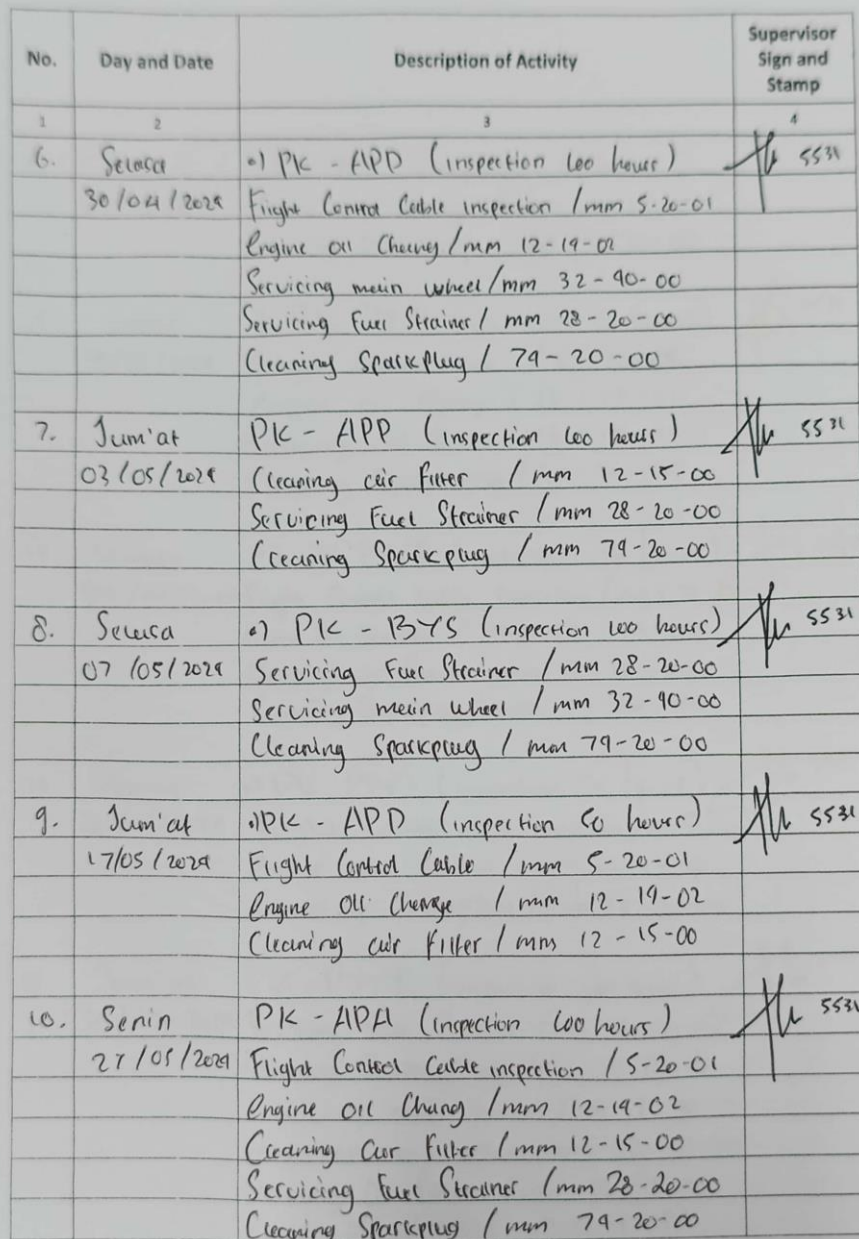 No. Day and Date Description of Activity Supervisor Sign and Stamp
1 2 3 4
6. Selasa •) PK - APD (inspection 100 hours) 5531
30/04/2024 Flight Control Cable inspection / mm 5-20-01
Engine Oil Chaneg / mm 12-19-02
Servicing main wheel / mm 32-40-00
Servicing Fuel Strainer / mm 28-20-00
Cleaning Sparkplug / 74-20-00
7. Jum'at PK - APP (inspection 100 hours) 5531
03/05/2024 Cleaning air Filter / mm 12-15-00
Servicing Fuel Strainer / mm 28-20-00
Cleaning Sparkplug / mm 74-20-00
8. Selasa •) PK - BYS (inspection 100 hours) 5531
07/05/2024 Servicing Fuel Strainer / mm 28-20-00
Servicing main wheel / mm 32-40-00
Cleaning Sparkplug / mm 74-20-00
9. Jum'at •) PK - APD (inspection 50 hours) 5531
17/05/2024 Flight Control Cable / mm 5-20-01
Engine Oil Change / mm 12-19-02
Cleaning air Filter / mm 12-15-00
10. Senin PK - APA (inspection 100 hours) 5531
27/05/2024 Flight Control Cable inspection / 5-20-01
Engine Oil Chang / mm 12-19-02
Cleaning air Filter / mm 12-15-00
Servicing Fuel Strainer / mm 28-20-00
Cleaning Sparkplug / mm 74-20-00